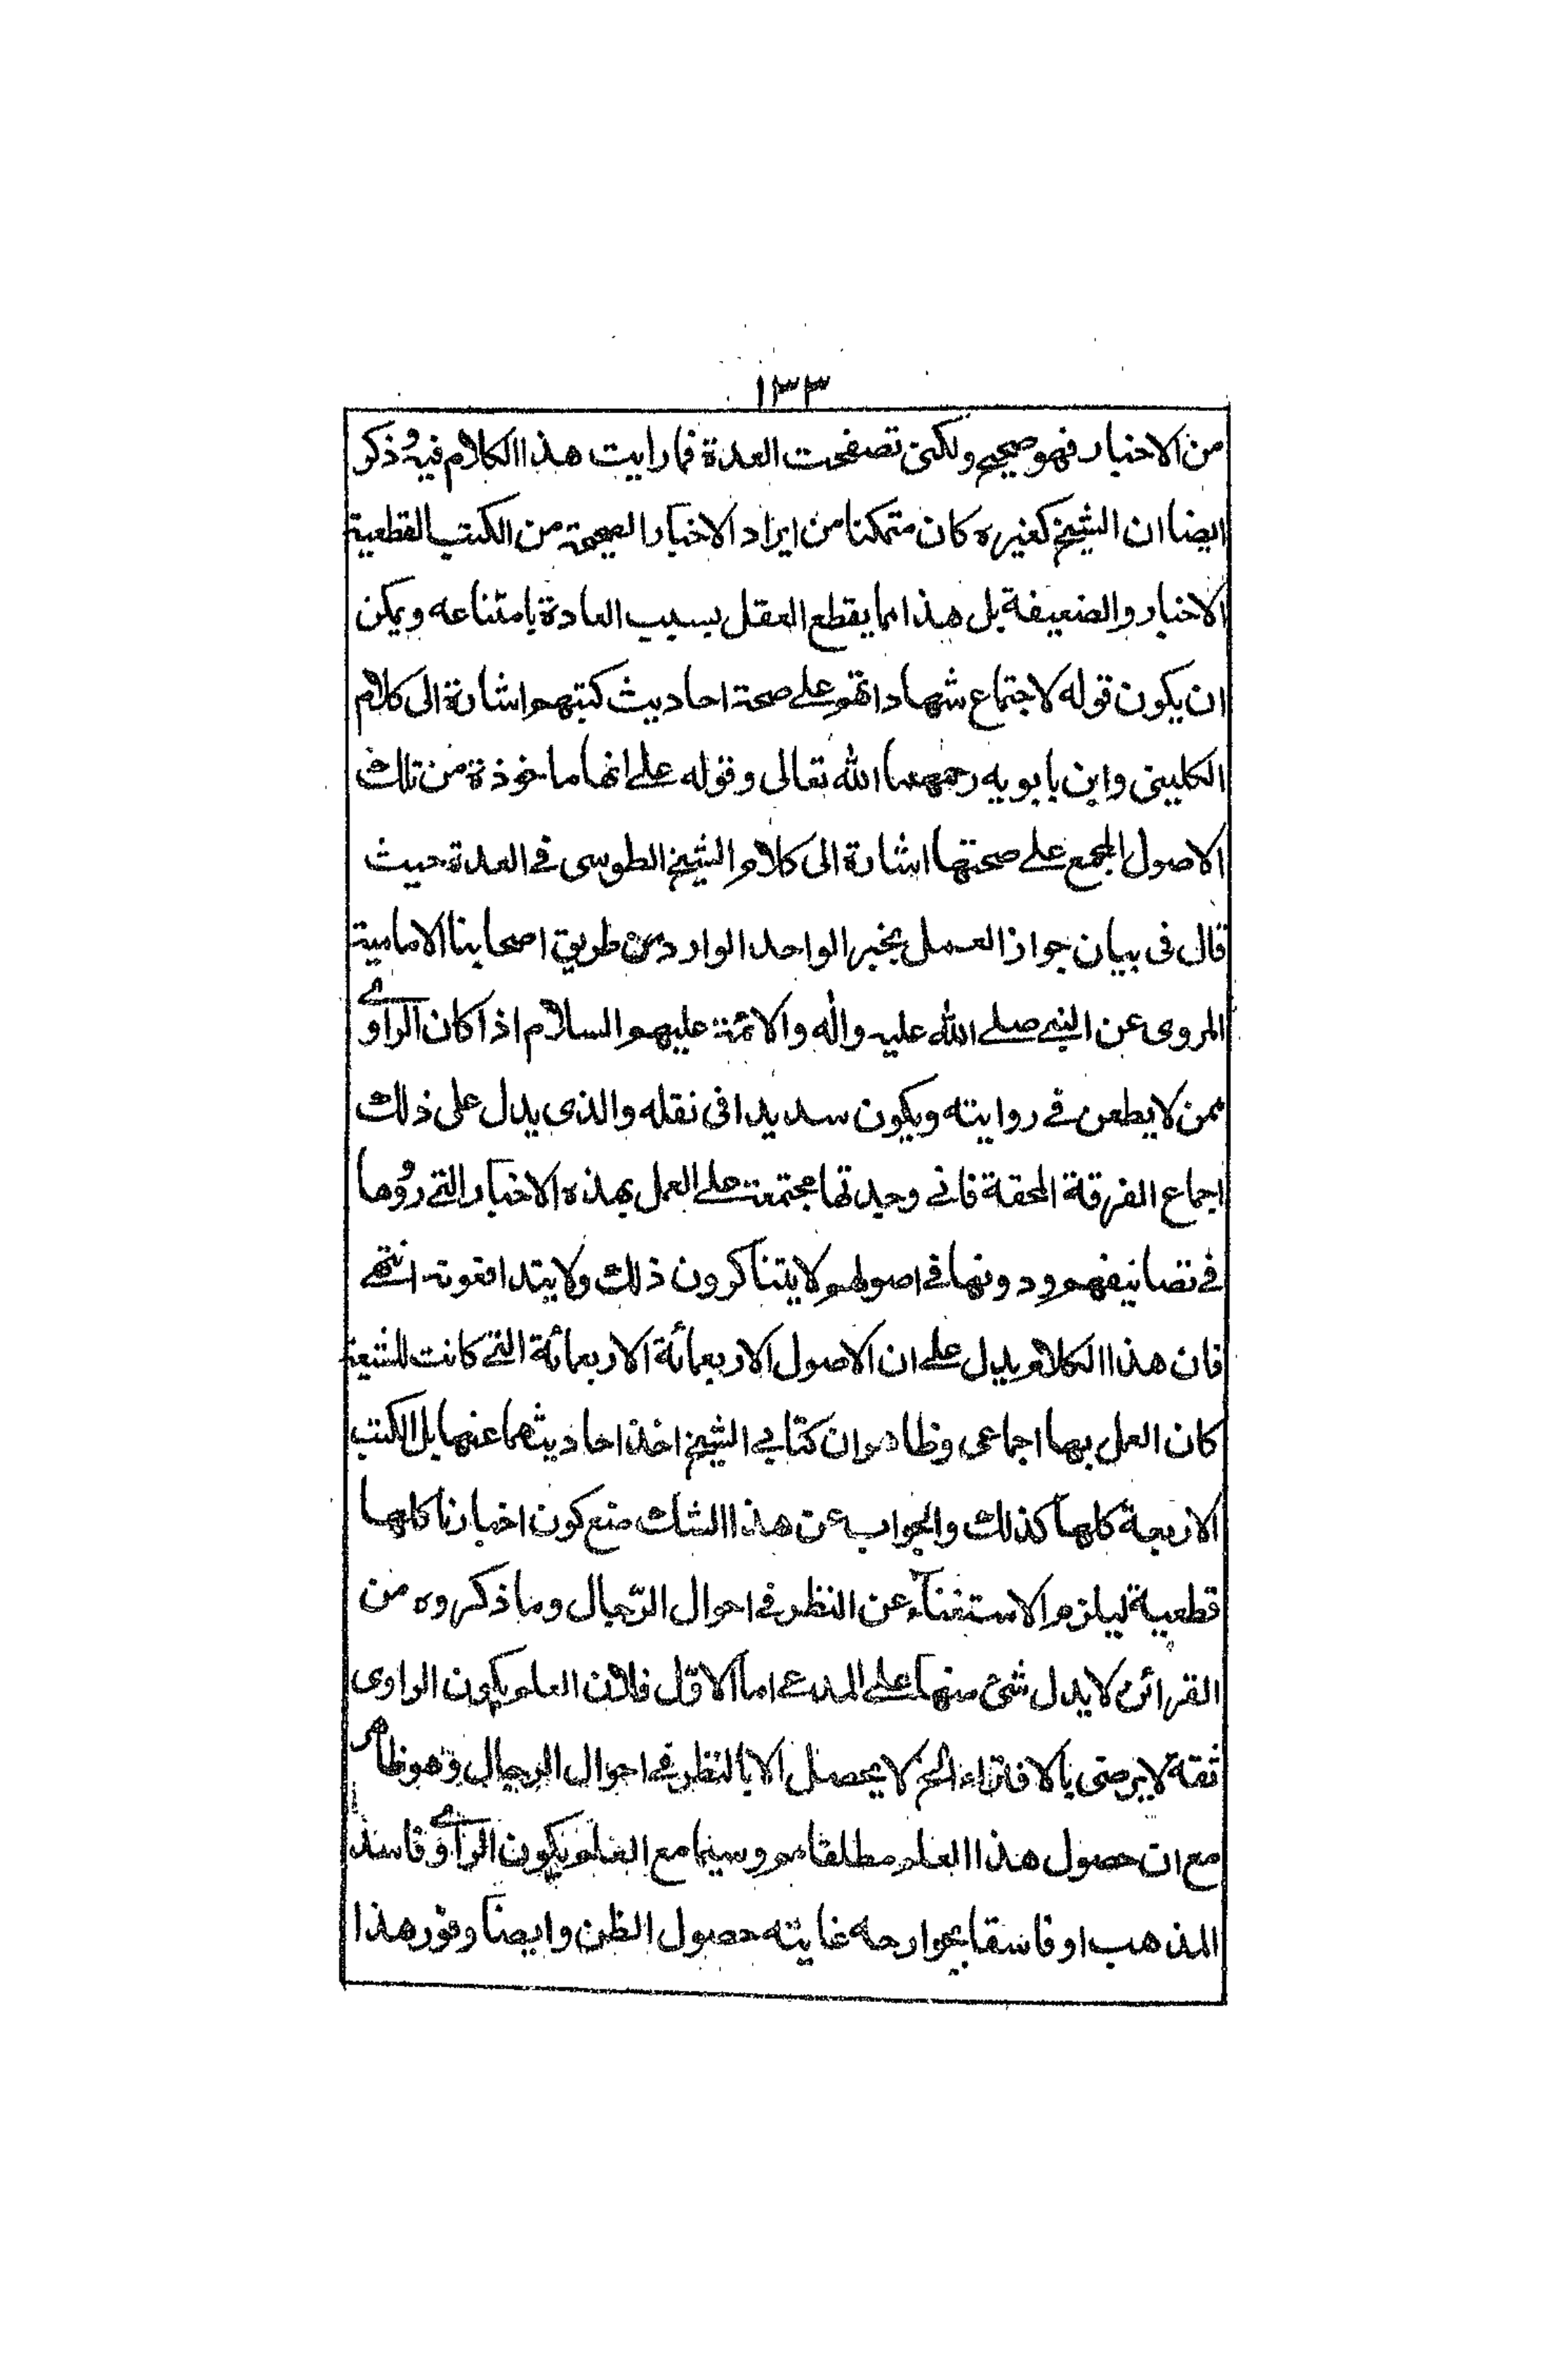 ١٣٣
من الاخبار فهو صحيح ولكنى تصفحت العدة فما رايت هذا الكلام فيه وذكر
ايضا ان الشيخ كغيره كان متمكنا من ايراد الاخبار الصحيحة من الكتب القطعية
الاخبار والضعيفة بل هذا مما يقطع العقل بسبب العادة بامتناعه ويمكن
ان يكون قوله لاجتماع شهاداتهم على صحة احاديث كتبهم اشارة الى كلام
الكلينى وابن بابويه رحمهما الله تعالى وقوله على انها ماخوذة من تلك
الاصول المجمع على صحتها اشارة الى كلام الشيخ الطوسى فى العدة حيث
قال فى بيان جواز العمل بخبر الواحد الوارد من طريق اصحابنا الامامية
المروى عن النبى صلى الله عليه واله والائمة عليهم السلام اذا كان الراوى
ممن لا يطعن فى روايته ويكون سديدا فى نقله والذى يدل على ذلك
اجماع الفرقة المحقة فانى وجدتها مجتمعة على العمل بهذه الاخبار التى رووها
فى تصانيفهم ودونها فى اصولهم لا يتناكرون ذلك ولا يتدافعونه انتهى
فان هذا الكلام يدل على ان الاصول الاربعمائة الاربعمائة التى كانت للشيعة
كان العمل بها اجماعى وظاهر ان كتابى الشيخ اخذ احاديثهما عنها بل الكتب
الاربعة كلها كذلك والجواب عن هذا الشك منع كون اخبارنا كلها
قطعية ليلزم الاستغناء عن النظر فى احوال الرّجال وما ذكروه من
القرائن لا يدل شئ منها على المدعى اما الاوّل فلان العلم بكون الراوى
ثقة لا يرضى بالافتراء الخ لا يحصل الا بالنظر فى احوال الرجال وهو ظاهر
مع ان حصول هذا العلم مطلقا مم وسيما مع العلم بكون الراوى فاسد
المذهب او فاسقا بجوارحه غايته حصول الظن وايضا وفور هذا